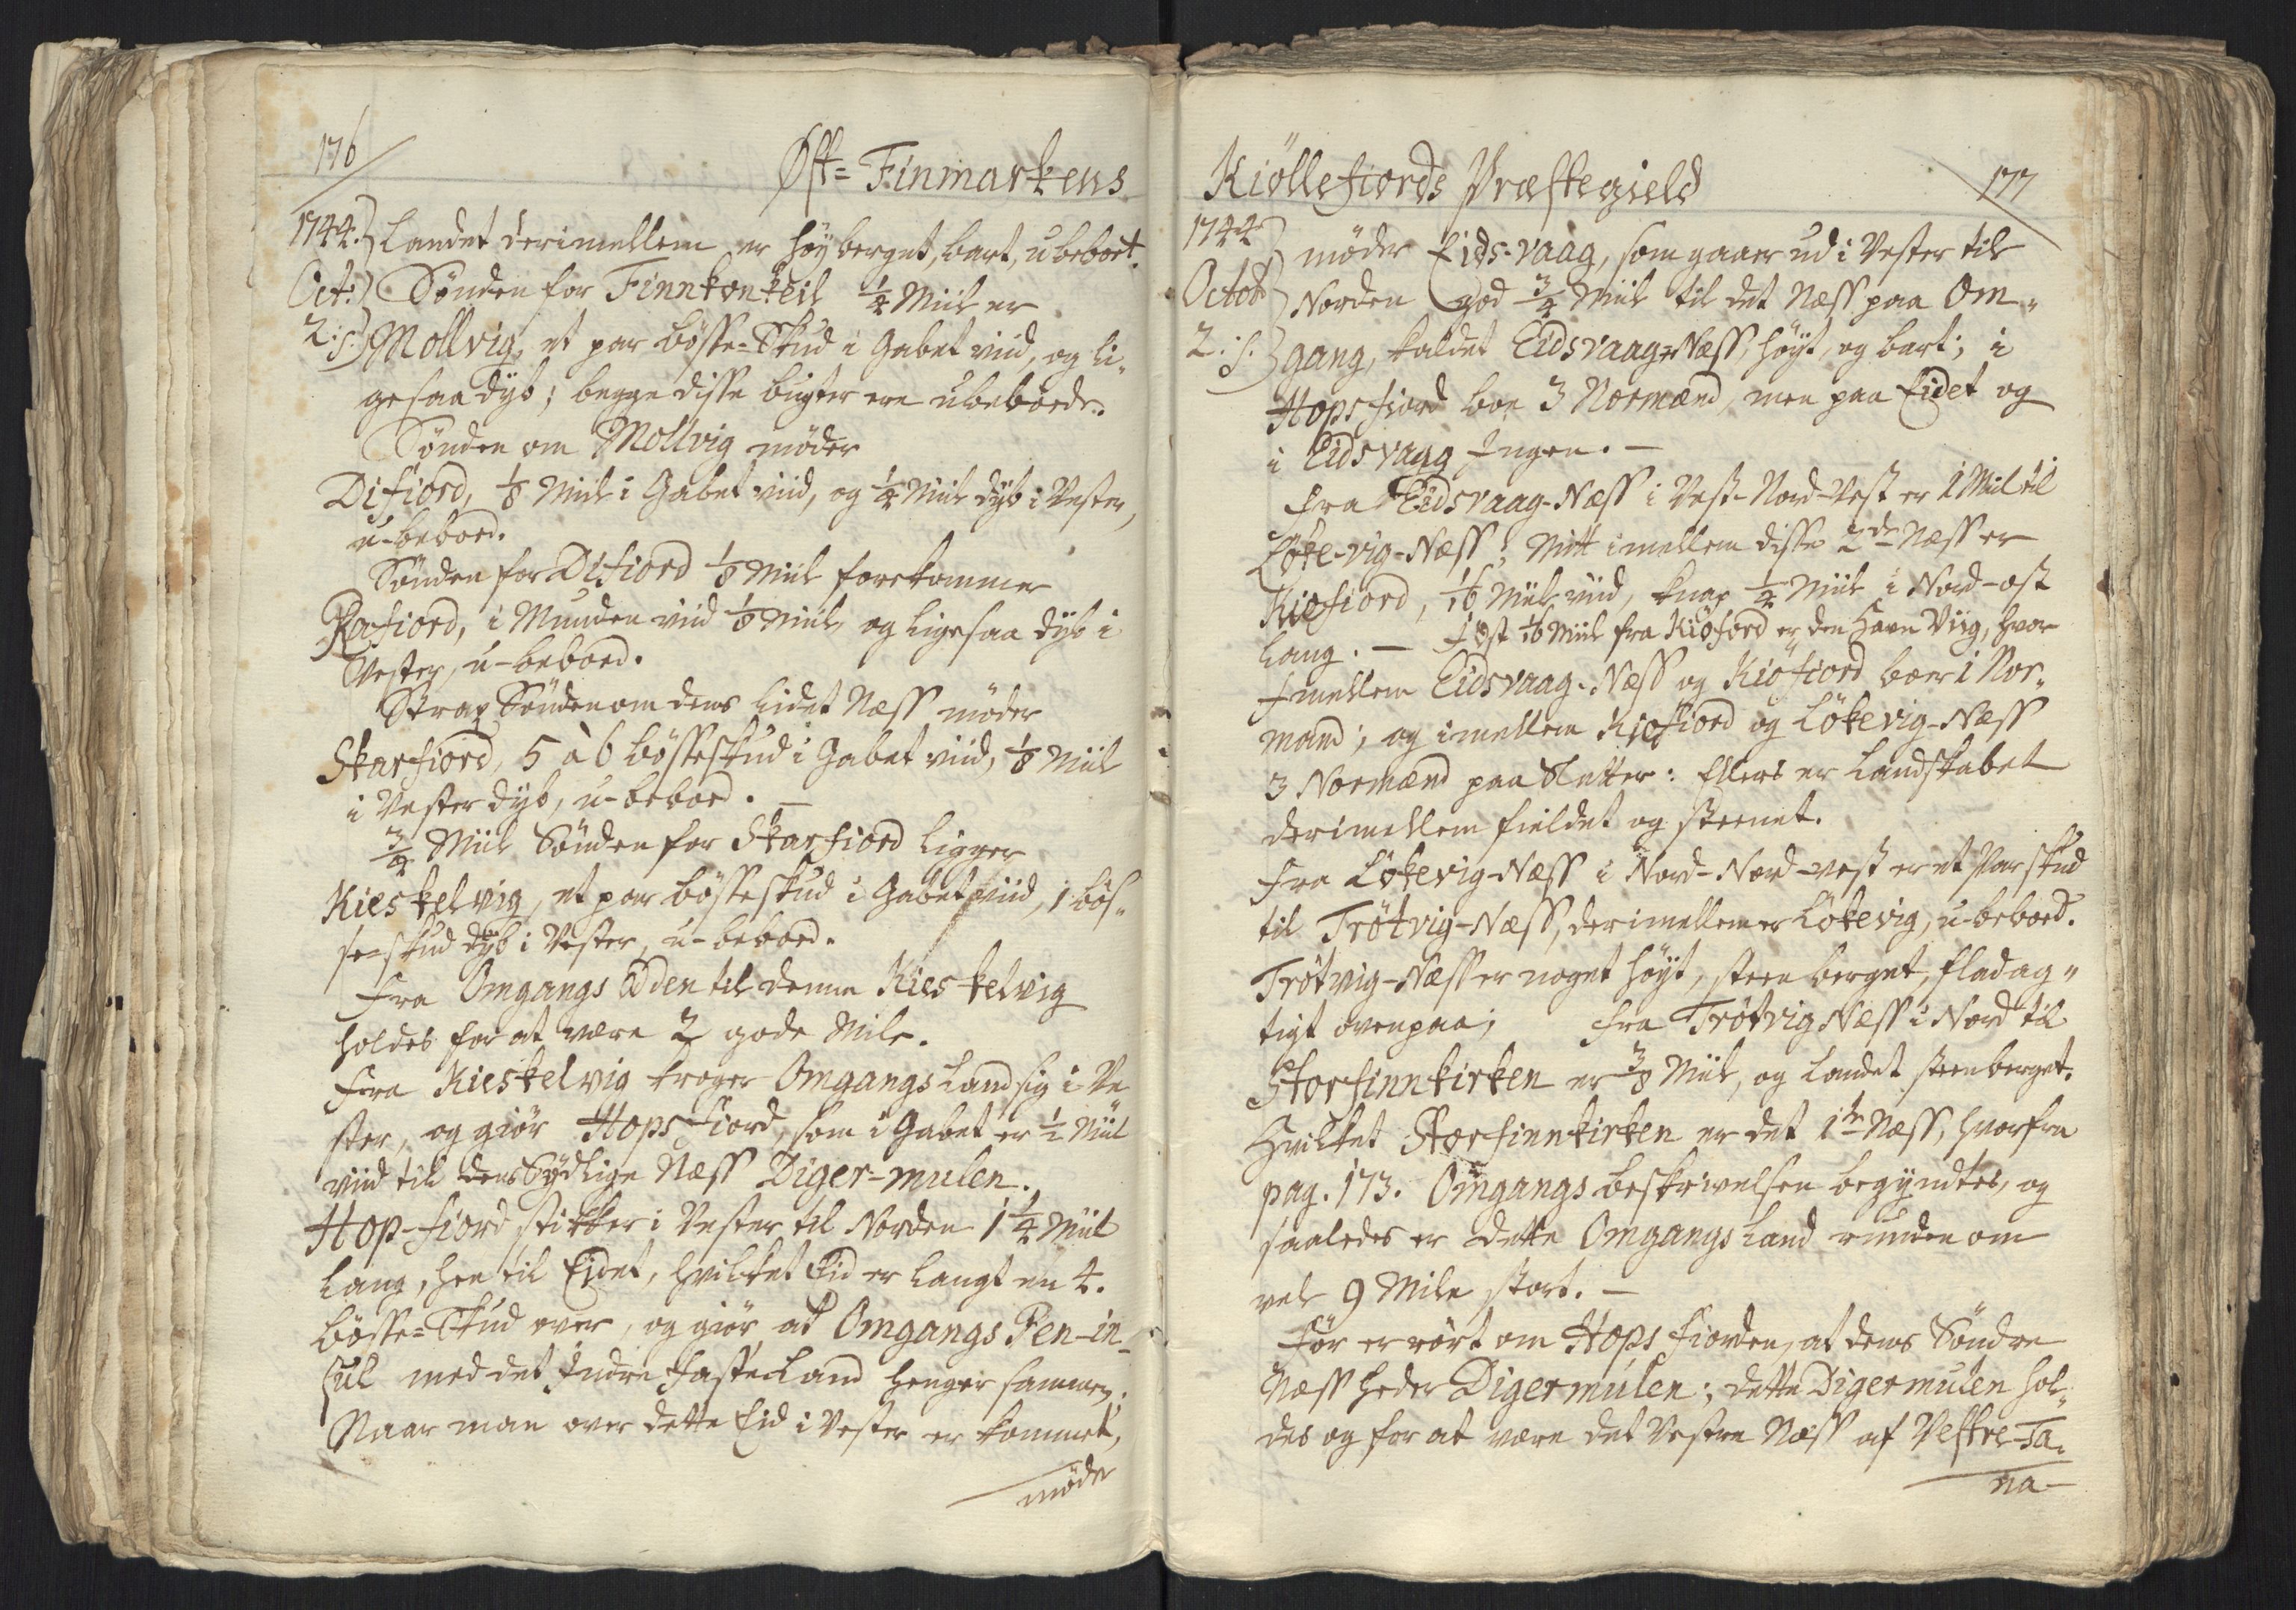 176
Øst= Finmarkens
1744.) Landet derimellem er høyberget, bart, ubeboet.
Oct:) Sønden for Finnkonkeil 1/4 Miil er
2:s:) Mollvig, et par bösse-Skud i Gabet viid, og li-
gesaa dyb; begge disse bugter ere ubeboede.
Sönden om Mollvig möder
Difiord, 1/8 Miil i Gabet viid, og 1/4 Miil dyb i Vester,
u-beboed.
Sönden for Difiord 1/8 Miil forekommer
Rafiord, i Munden viid 1/8 Miil, og ligesaa dyb i
Vester, u-beboed.
Strax Sönden om dens lidet Næss möder
Skarfiord, 5 à 6 bösseskud i Gabet viid, 1/8 Miil
i Vester dyb, u-beboed. —
3/4 Miil Sönden for Skarfiord ligger
Kieskelvig, et par bösseskud i Gabet viid, 1 bös-
se-skud dyb i Vester, u-beboed.
Fra Omgangs Odden til denne Kieskelvig
holdes for at være 2 gode Mile.
Fra Kieskelvig kroger Omgangs Land sig i Ve
ster, og giör Hopsfiord, som i Gabet er 1/2 Miil
viid til dens Sydlige Næss Diger-mulen.
Hop-fiord stikker i Vester til Norden 1 1/4 Miil
lang, hen til Eidet, hvilket Eid er langt en 4.
bösse=Skud over, og giör at Omgangs Pen-in-
sul med det Indre Faste Land henger sammen.
Naar man over dette Eid i Vester er kommet,
möder
Kiöllefiords Præstegield
177
1744) möder Eids-vaag, som gaaer ud i Vester til
Octob:) Norden god 3/4 Miil til det Næss paa Om-
2:s:) gang, kaldet Eidsvaag-Næss, höyt, og bart; i
Hopsfiord boe 3 Normænd, men paa Eidet og
i Eidsvaag Ingen. —
Fra Eidsvaag-Næss i Vest-Nord-Vest er 1 Miil til
Löke-vig-Næss; Mitt imellem disse 2de Næss er
Kiöfiord, 1/16 Miil viid, knap 1/4 Miil i Nord-ost
lang. — Øst 1/16 Miil fra Kiöfiord er den Havn Viig, hvor
Imellem Eidsvaag-Næss og Kiöfiord boer 1 Nor-
mand; og imellem Kiöfiord og Lökevig-Næss
3 Normænd paa Sletter: Ellers er Landskabet
derimellem fieldet og steenet.
Fra Lökevig-Næss i Nord-Nord-vest er et Par skud
til Trötvig-Næss, derimellem er Lökevig, u-beboed.
Trötvig-Næss er noget höyt, steenberget, fladag-
tigt ovenpaa; Fra Trötvig Næss i Nord til
Storfinnkirken er 3/8 Miil, og Landet steenberget.
Hvilket Storfinnkirken er det 1te Næss, hvorfra
pag. 173. Omgangs beskrivelsen begyndtes, og
saaledes er dette Omgangs Land runden om
vel 9 Mile stort. —
För er rört om Hops fiorden, at dens Söndre
Næss heder Digermulen; dette Digermulen hol-
des og for at være det Vestre Næss af Vestre-Ta-
na-